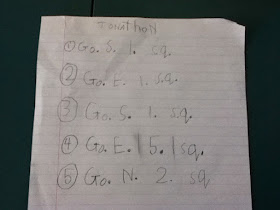 ① Go. S. 1. sq.
② Go. E. 1. sq.
③ Go. S. 1. sq.
④ Go. E. 5. 1 sq.
⑤ Go. N. 2. sq